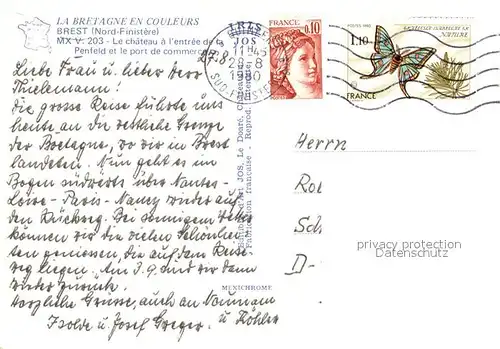 LA BRETAGNE EN COULEURS
BREST (Nord-Finistère)
MX V. 203 - Le château à l'entrée de la
Penfeld et le port de commerce
27.8.
11-45
29-8
1980
0,10
1,10
POSTES 1980
FRANCE
Liebe Frau u. lieber Herr
Thielemann!
Die grosse Reise führte uns
heute an die westliche Grenze
der Bretagne, wo wir in Brest
landeten. Nun geht es im
Bogen südwärts über Nantes-
Loire-Paris-Nancy wieder auf
den Rückweg. Bei sonnigem Wetter
können wir die vielen Schönhei-
ten geniessen, die auf dem Reise-
weg liegen. Am 3.9. sind wir dann
wieder zurück.
Herzliche Grüsse, auch an Naumann
Isolde u. Josef Greger. u. Köhler
Editions d'Art JOS, Le Doaré, Châteaulin
Fabrication Française - Reprod.
MEXICHROME
Herrn
Rol
Sch
D-
privacy protection
Datenschutz